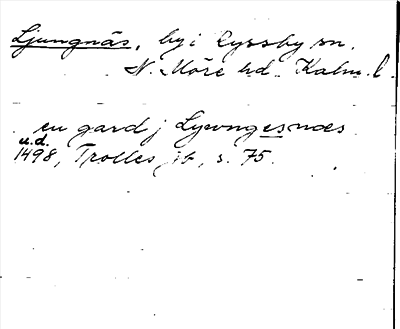 Ljungnäs, by i Ryssby sn.
N. Möre hd. Kalm. l.
en gard j Lywngesnæs
u.d.
1498, Trolles jb, s. 75.